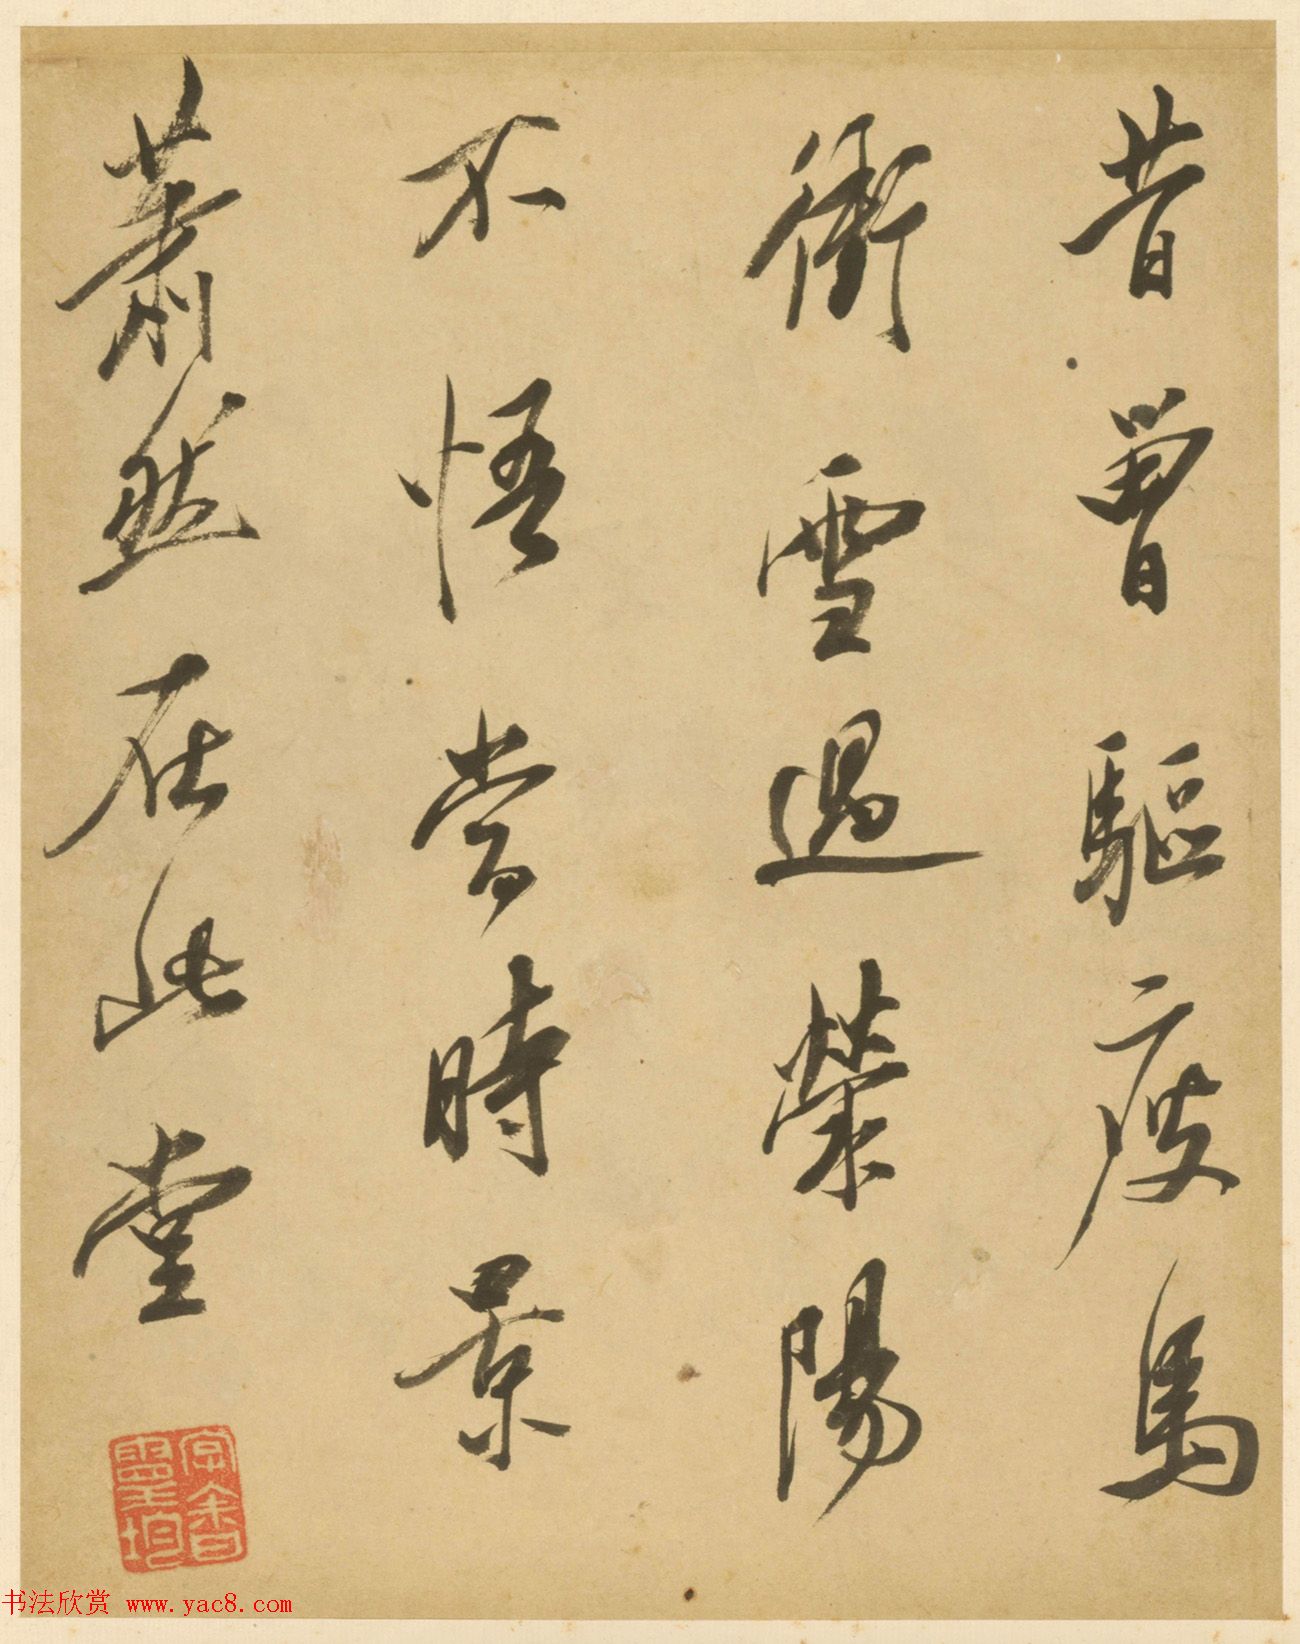 昔曾驅瘦馬
衝雪過滎陽
不悟當時景
蕭然在此堂
书法欣赏 www.yac8.com